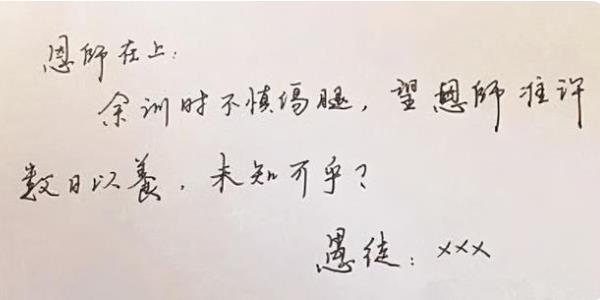 恩師在上：
余训时不慎傷腿，望恩師准许
数日以養，未知可乎？
愚徒：×××